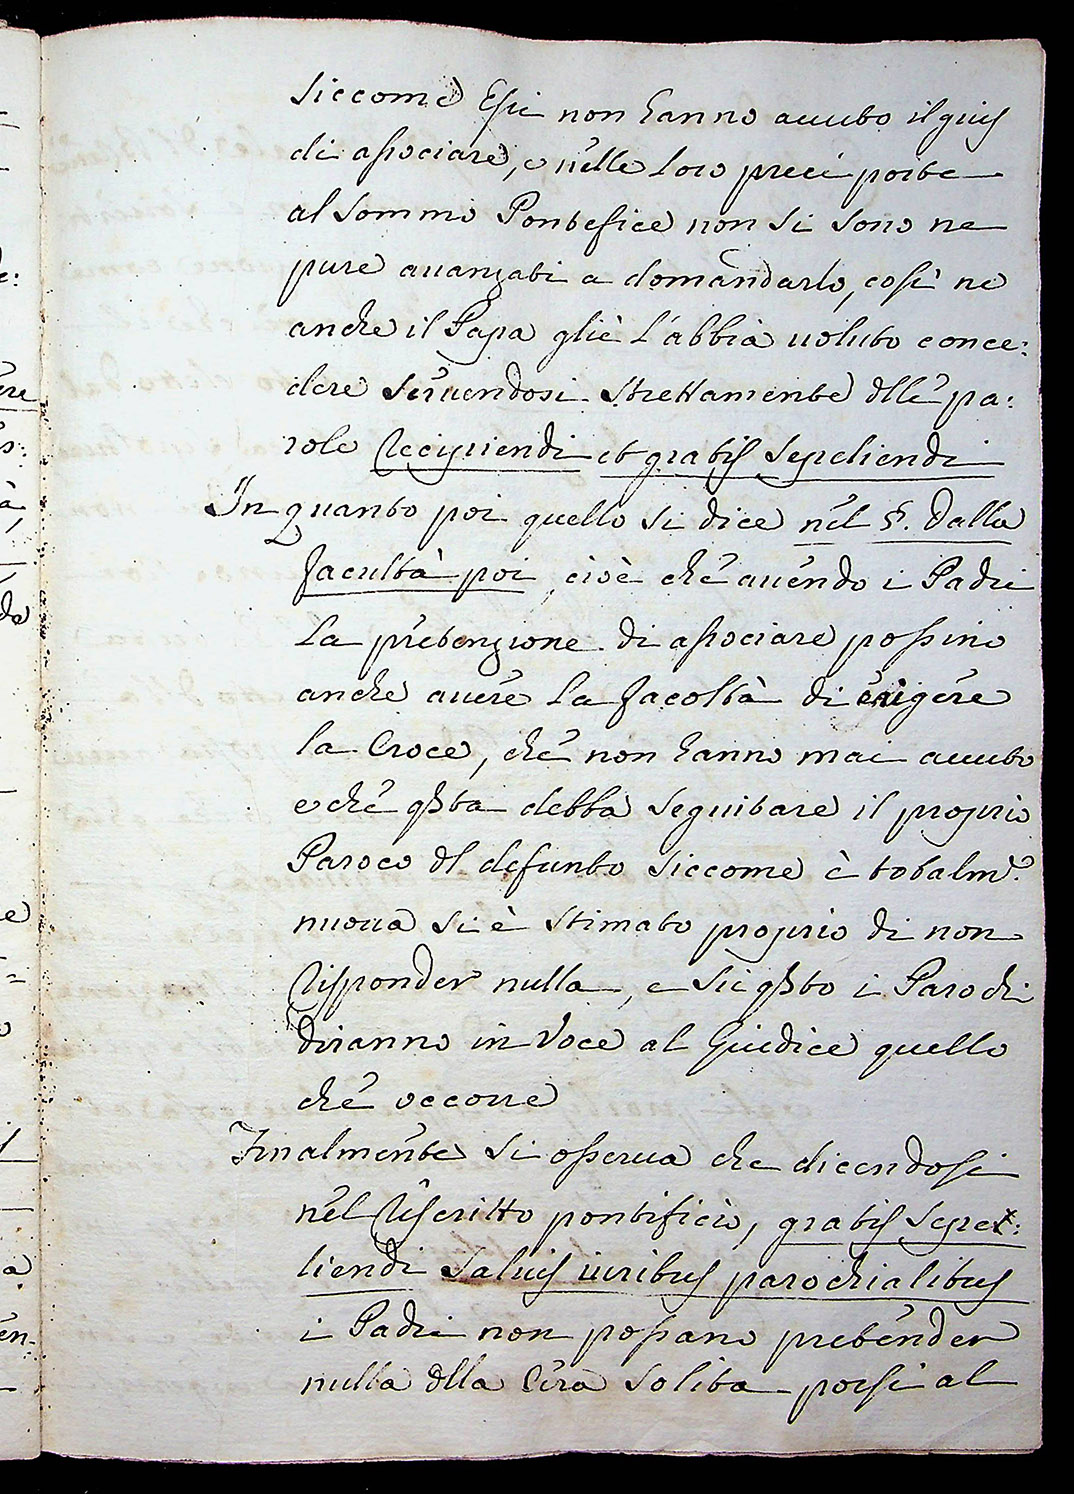 siccome Essi non hanno auuto il gius
di associare, e nelle loro preci porte
al Sommo Pontefice non si sono ne
pure auanzati a domandarlo, così ne
anche il Papa gliè l'abbia uoluto conce:
dere seruendosi strettamente dlle pa:
role Recipiendi et gratis sepeliendi
In quanto poi quello si dice nel §. Dalla
facultà poi, cioè che auendo i Padri
la pretenzione di associare possino
anche auere la facoltà di erigere
la Croce, che non hanno mai auuto
e che qsta debba seguitare il proprio
Paroco dl defunto siccome è totalme.
nuoua si è stimato proprio di non
risponder nulla, e su qsto i Parochi
diranno in voce al Giudice quello
che occorre
Finalmente si osserua che dicendosi
nel Rescritto pontificio, gratis sepe:
liendi saluis iuribus parochialibus
i Padri non possano pretender
nulla dlla Cera solita porsi al